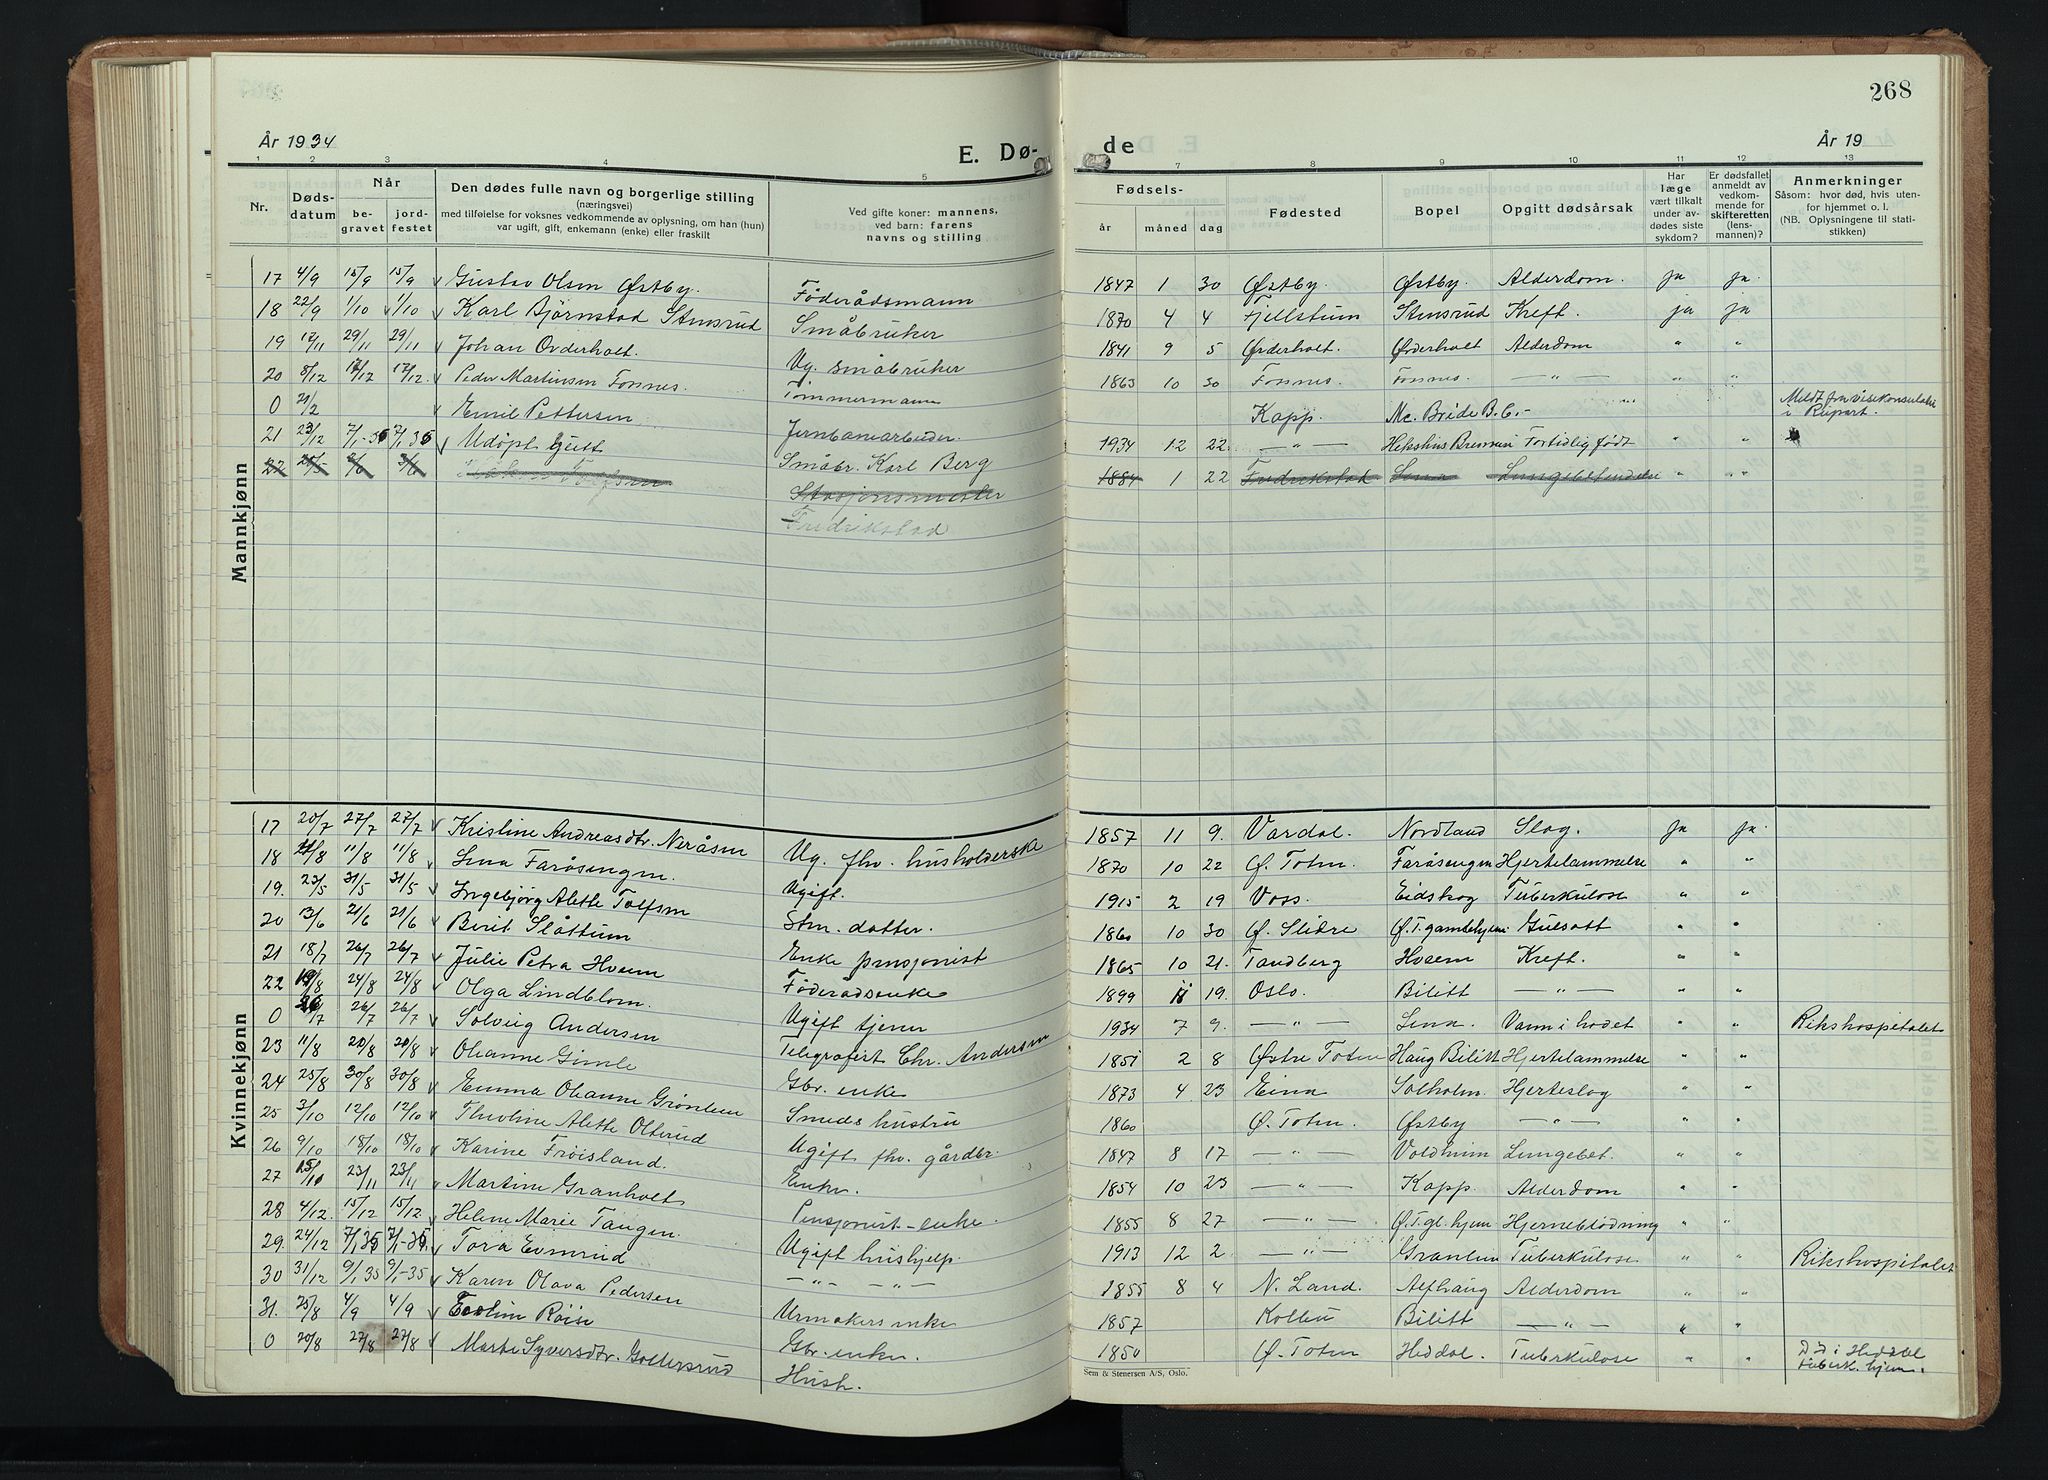 268
År 1934
E. Dø-
de
År 19
1 2 3 4 5 7 8 9 10 11 12 13
Nr.
Døds-
datum
Når
be-
gravet
jord-
festet
Den dødes fulle navn og borgerlige stilling
(næringsvei)
med tilføielse for voksnes vedkommende av oplysning, om han (hun)
var ugift, gift, enkemann (enke) eller fraskilt
Ved gifte koner: mannens,
ved barn: farens
navns og stilling
Fødsels-
år måned dag
Fødested
Bopel
Opgitt dødsårsak
Har
læge
vært tilkalt
under av-
dødes siste
sykdom?
Er dødsfallet
anmeldt av
vedkom-
mende for
skifteretten
(lens-
mannen)?
Anmerkninger
Såsom: hvor død, hvis uten-
for hjemmet o. l.
(NB. Oplysningene til stati-
stikken)
Mannkjønn
17 4/9 15/9 15/9 Gustav Olsen Østby. Føderådsmann 1847 1 30 Østby. Østby. Alderdom. ja ja.
18 22/9 1/10 1/10 Karl Bjørnstad Stensrud Småbruker 1870 4 4 Fjellstum Stensrud Kreft. ja ja
19 12/11 29/11 29/11 Johan Ovderholt. Ug. småbruker 1841 9 5 Øvderholt. Øvderholt Alderdom " "
20 8/12 17/12 17/12. Peder Martinsen Fonnes. Tømmermann 1863 10 30 Fonnes. Fonnes. — " — " "
0 21/2 Emil Pettersen Jernbanearbeider. Kapp. Mc. Bride B.C. Meldt fra visekonsulatet
i Rupert.
21 23/12 7/1-35 7/1 35 Udøpt gutt Småbr. Karl Berg 1934 12 22. — " — Fortidlig født " "
22 Tolfsen Stasjonsmester 1884 1 22 Fredrikstad Lena Lungebetendelse " "
Fredrikstad
Kvinnekjønn
17 20/7 27/7 27/7 Kristine Andreasdtr. Neråsen Ug. fhv. husholderske 1857 11 9. Vardal. Nordland Slag. ja ja.
18 11/8 11/8 Lina Farøsengen. Ugift. 1870 10 22 Ø. Toten. Farøsengen Hjertelammelse " "
19. 23/5 31/5 31/5 Ingebjørg Alette Tolfsen Stm. datter. 1915 2 19 Voss. Eidskog Tuberkulose " "
20 13/6 21/6 21/6 Berit Slåttum Enke pensjonist 1860 10 30 Ø. Slidre Ø.T. gamlehjem Gulsott " "
21 18/7 26/7 26/7 Julie Petra Hveem Føderådsenke 1865 10 21. Tandberg Hveem Kreft. " "
22 19/8 24/8 24/8 Olga Lindblom. Ugift tjener 1899 11 19. Oslo. Bilitt — " — " "
0 26/7 26/7 Solveig Andersen Telegrafist Chr. Andersen 1934 7 9. — " — Lena. Vann i hodet " " Rikshospitalet
23 11/8 20/8 20/8 Oleanne Gimle Gbr. enke 1851 2 8 Østre Toten Haug Bilitt Hjertelammelse " "
24 25/8 30/8 30/8 Emma Oleanne Grønlien Smeds hustru 1873 4 23 Eina Solholm. Hjerteslag " "
25 3/10 12/10 12/10 Theoline Alette Olterud Ugift fhv. gårdbr. 1860 Ø. Toten. Østby — " — " "
26 9/10 18/10 18/10 Karine Frøisland. Enke. 1847 8 17 — " — Voldheim Lungebet. " "
27 15/10 23/11 23/11 Martine Granholt Pensjonist-enke 1854 10 23 — " — Kapp. Alderdom " "
28 4/12. 15/12 15/12 Helene Marie Tangen. Ugift hushjelp. 1855 8 27 — " — Ø.T. gl. hjem Hjerneblødning " "
29. 24/12 7/1 35 7/1-35. Tora Evenrud — " — — " — 1913 12 2. — " — Granlien Tuberkulose " " Rikshospitalet
30 31/12 9/1 35 9/1-35 Karen Olava Pedersen Urmakers enke 1855 8 4 N. Land. Alfhaug Alderdom " "
31. 25/8 4/9 4/9 Evelin Røise Gbr. enke. 1857 Kolbu Bilitt — " — " "
0 20/8 27/8 27/8 Marte Syversdtr. Gollersrud Hush. 1850 Ø. Toten Heddal. Tuberkulose " " Død i Heddal
tuberk. hjem.
Sem & Stenersen A/S, Oslo.